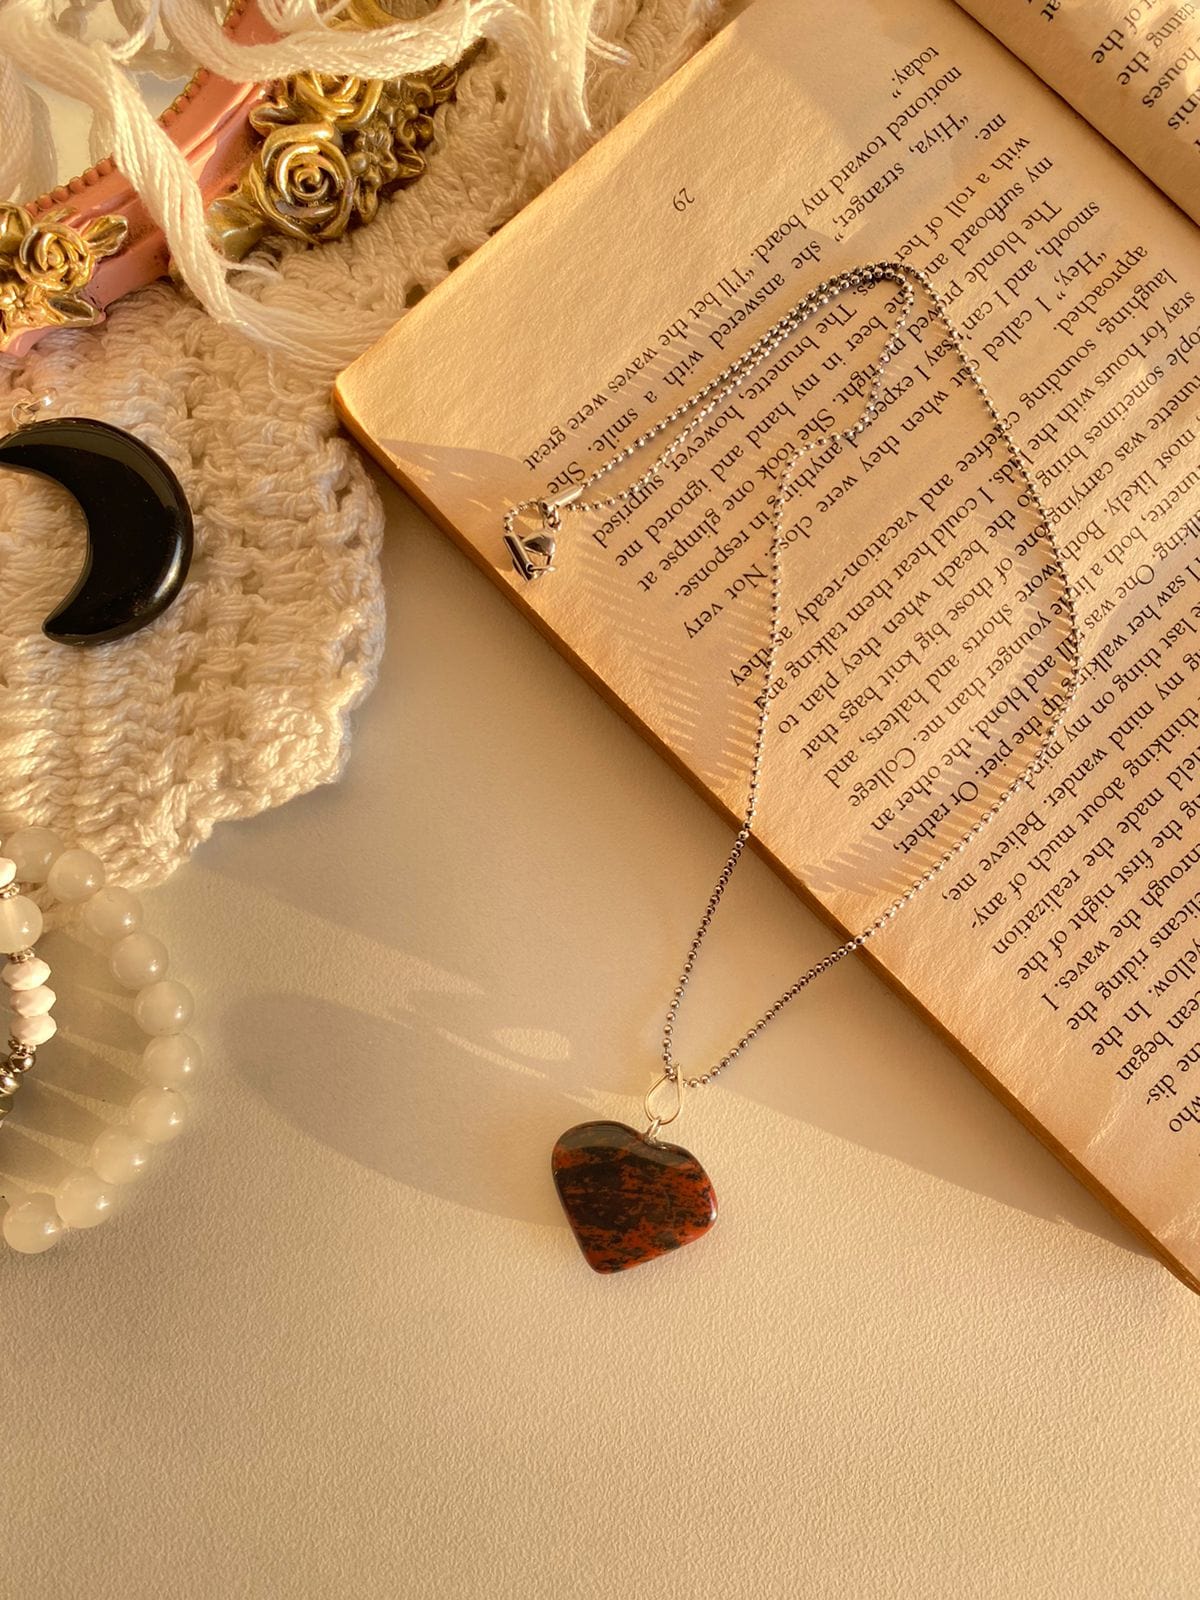 who
dis-
began
yellow. In the
riding the
the waves. I
the first night of the
made the realization
thinking about much of any-
my mind wander. Believe me,
last thing on my mind.
I saw her walking up the pier. Or rather,
One was tall and blond, the other an
both a little younger than me. College
most likely. Both wore shorts and halters, and
was carrying one of those big knit bags that
sometimes bring to the beach when they plan to
stay for hours with the kids. I could hear them talking and
laughing, sounding carefree and vacation-ready as they
approached.
“Hey,” I called out when they were close. Not very
smooth, and I can't say I expected anything in response.
The blonde proved me right. She took one glimpse at
my surfboard and the beer in my hand and ignored me
with a roll of her eyes. The brunette, however, surprised
me.
“Hiya, stranger,” she answered with a smile. She
motioned toward my board. “I'll bet the waves were great
today.”
29
houses
the
of the
at